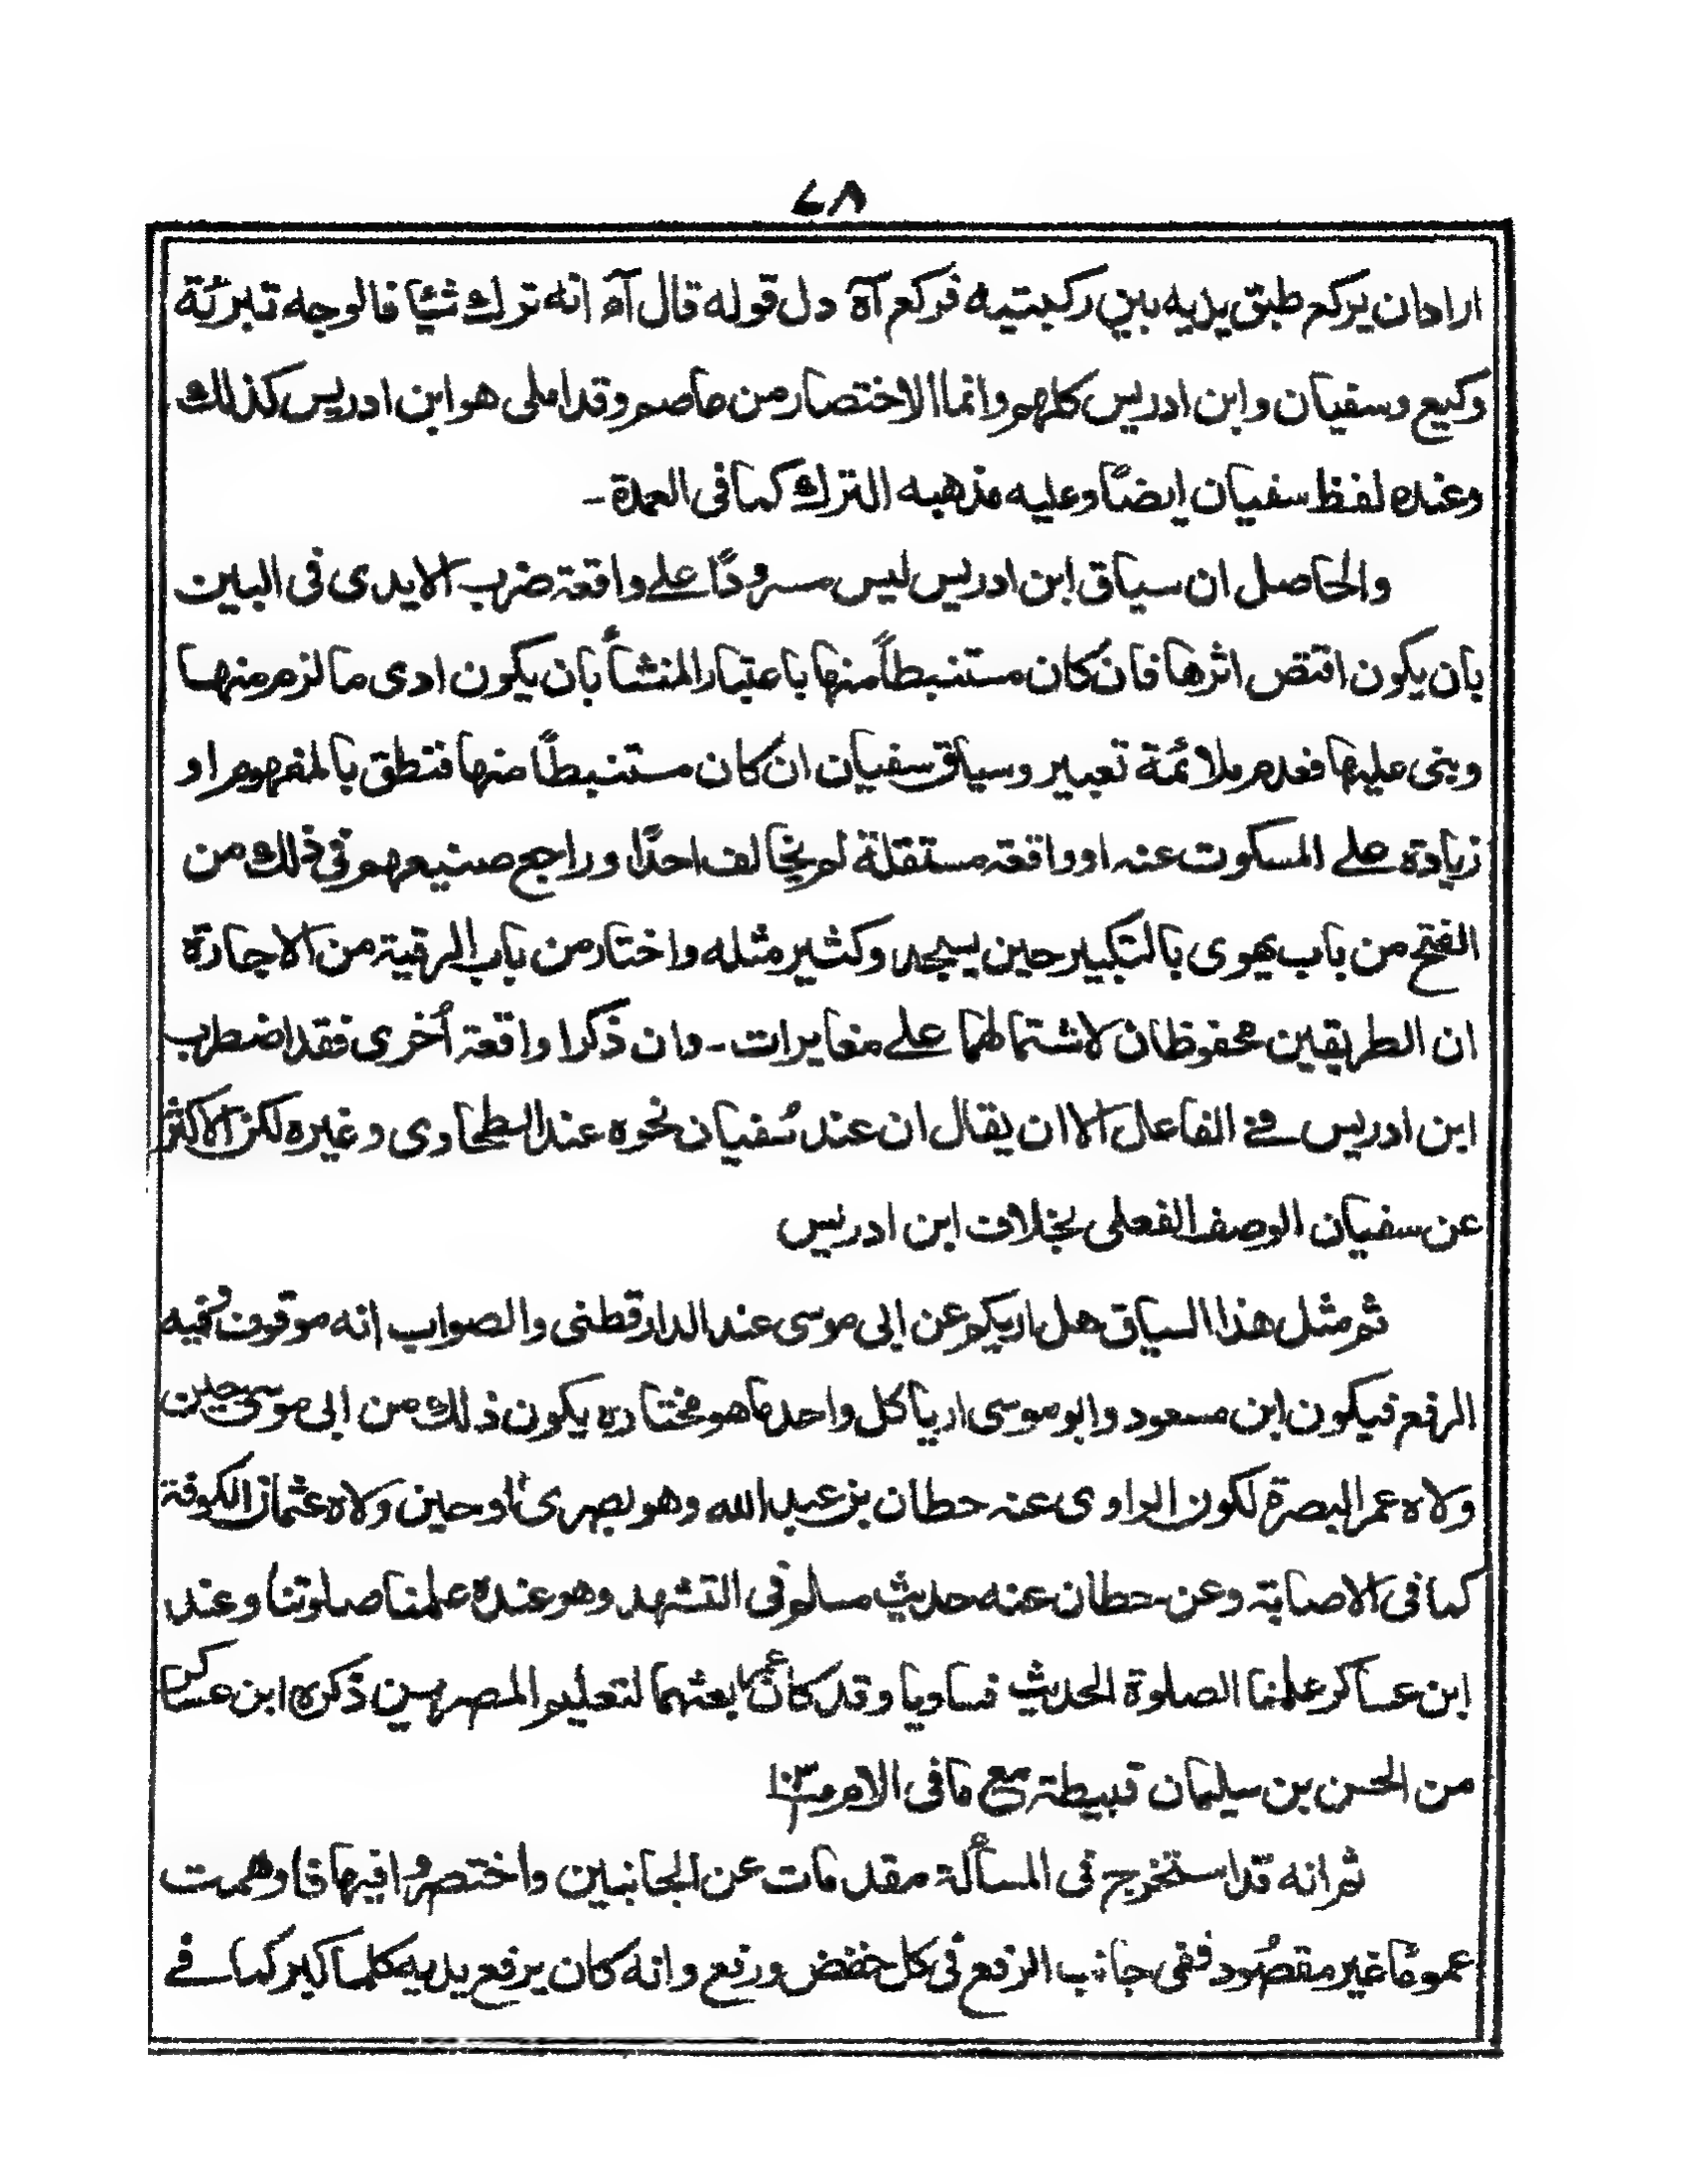 ٧٨
اراد ان يركع طبق يديه بين ركبتيه فركع آه دل قوله قال آه انه ترك شيئا فالوجه تبرئة
وكيع وسفيان وابن ادريس كلهم وانما الاختصار من عاصم وقد املى هو ابن ادريس كذلك
وعنده لفظ سفيان ايضًا وعليه مذهبه الترك كما فى العمدة -
والحاصل ان سياق ابن ادريس ليس مسرودًا على واقعة ضرب الايدى فى البين
بان يكون اقتص اثرها فان كان مستنبطاً منها باعتبار المنشأ بان يكون ادى ما لزم منها
وبنى عليها فعدم ملائمة تعبير وسياق سفيان ان كان مستنبطًا منها فنطق بالمفهوم او
زيادة على المسكوت عنه او واقعة مستقلة لم يخالف احدًا وراجع صنيعهم فى ذلك من
الفتح من باب يهوى بالتكبير حين يسجد وكثير مثله واختار من باب الرقية من الاجارة
ان الطريقين محفوظان لاشتمالهما على مغايرات - وان ذكرا واقعة أخرى فقد اضطرب
ابن ادريس فى الفاعل الا ان يقال ان عند سُفيان نحوه عند الطحاوى وغيره لكن الاكثر
عن سفيان الوصف الفعلى بخلاف ابن ادريس
ثم مثل هذا السياق هل اريكم عن ابى موسى عند الدارقطنى والصواب انه موقوف وفيه
الرفع فيكون ابن مسعود وابو موسى اريا كل واحد ما هو مختاره يكون ذلك من ابى موسى حين
ولاه عمر البصرة لكون الراوى عنه حطان بن عبد الله وهو بصرى او حين ولاه عثمان الكوفة
كما فى الاصابة وعن حطان عنه حديث مسلم فى التشهد وهو عنده علمنا صلوتنا وعند
ابن عساكر علمنا الصلوة الحديث فساويا وقد كان بعثهما لتعليم المصرين ذكره ابن عساكر
من الحسن بن سليمان قبيطة مع ما فى الام
ثم انه قد استخرج فى المسألة مقدمات عن الجانبين واختصروا فيها فاوهمت
عمومًا غير مقصُود ففى جانب الرفع فى كل خفض ورفع وانه كان يرفع يديه كلما كبر كما فى